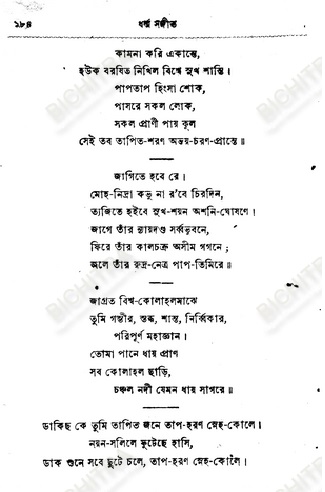 ১৮৪ ধর্ম্ম সঙ্গীত
কামনা করি একান্তে,
হউক বরষিত নিখিল বিশ্বে সুখ শান্তি।
পাপতাপ হিংসা শোক,
পাসরে সকল লোক,
সকল প্রাণী পায় কূল
সেই তব তাপিত-শরণ অভয়-চরণ-প্রান্তে॥
জাগিতে হবে রে।
মোহ-নিদ্রা কভু না র'বে চিরদিন,
ত্যজিতে হইবে সুখ-শয়ন অশনি-ঘোষণে।
জাগে তাঁর ন্যায়দণ্ড সর্ব্বভুবনে,
ফিরে তাঁর কালচক্র অসীম গগনে;
জ্বলে তাঁর রুদ্র-নেত্র পাপ-তিমিরে॥
জাগ্রত বিশ্ব-কোলাহলমাঝে
তুমি গম্ভীর, স্তব্ধ, শান্ত, নির্ব্বিকার,
পরিপূর্ণ মহাজ্ঞান।
তোমা পানে ধায় প্রাণ
সব কোলাহল ছাড়ি,
চঞ্চল নদী যেমন ধায় সাগরে॥
ডাকিছ কে তুমি তাপিত জনে তাপ-হরণ স্নেহ-কোলে।
নয়ন-সলিলে ফুটেছে হাসি,
ডাক শুনে সবে ছুটে চলে, তাপ-হরণ স্নেহ-কোলে।
BICHITRA